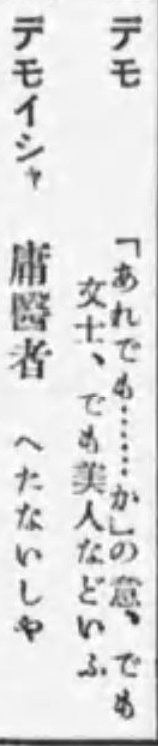 デモ　「あれでも……か」の意、でも
女士、でも美人などいふ
デモイシャ　庸醫者　へたないしや